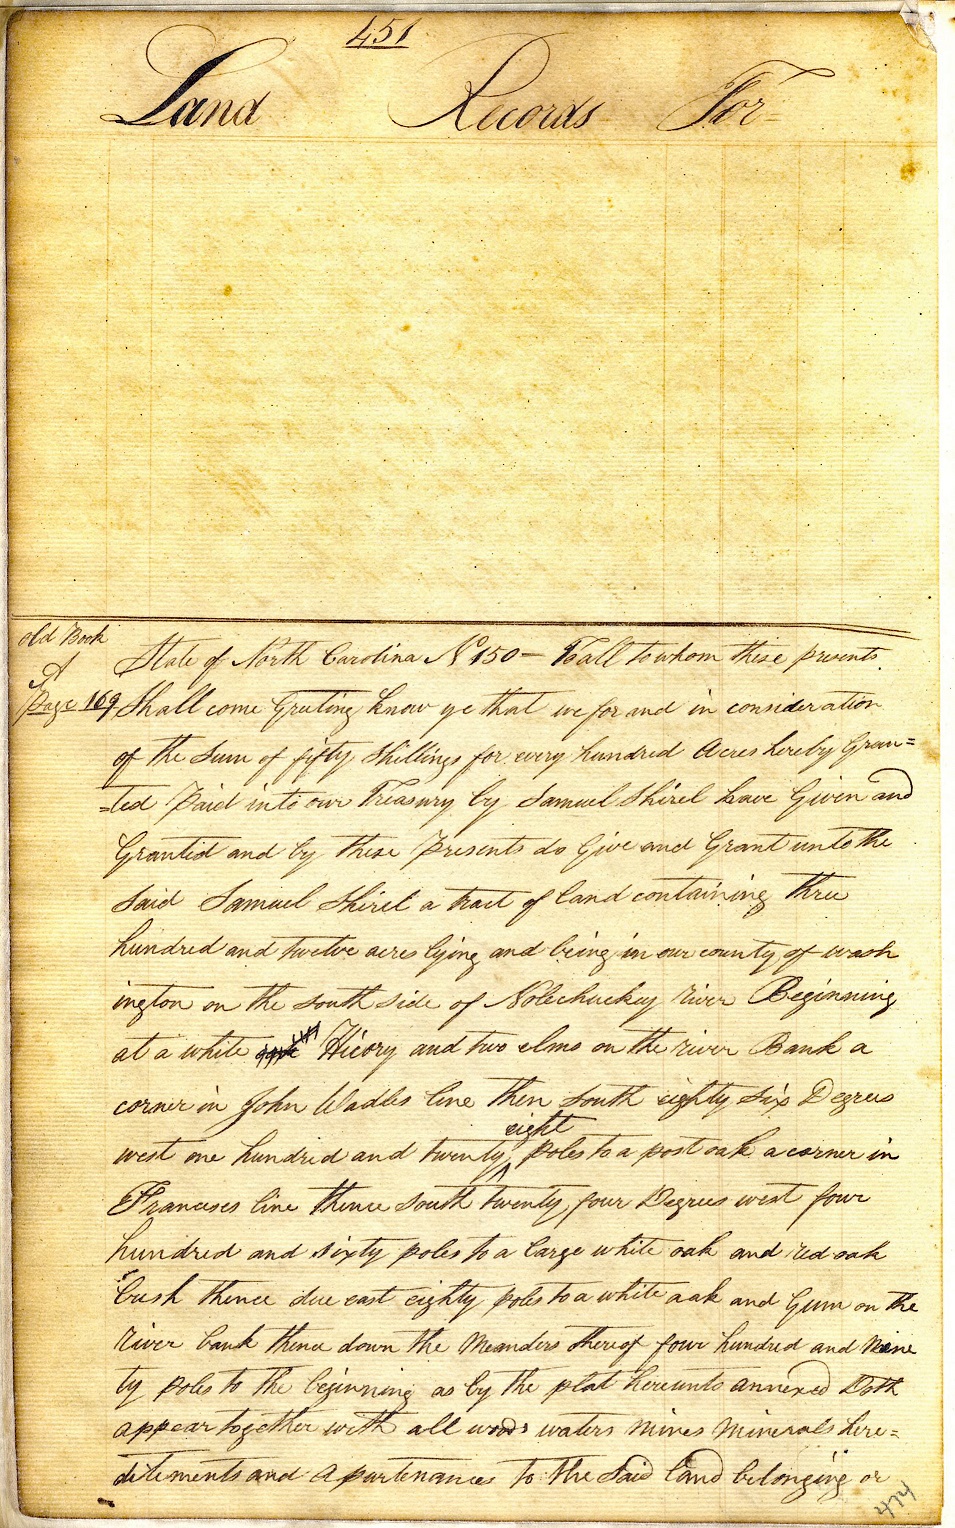 451
Land Records For=
old Book
A
Page 169
State of North Carolina No 150 — To all to whom these presents
Shall come Greeting know ye that we for and in consideration
of the Sum of fifty Shillings for every hundred Acres hereby Gran=
=ted Paid into our Treasury by Samuel Shirel have Given and
Granted and by these Presents do Give and Grant unto the
Said Samuel Shirel a tract of land containing three
hundred and twelve acres lying and being in our county of wash
ington on the south side of Nolechuckey river Beginning
at a white Hicory and two elms on the river Bank a
corner in John Wadles line then South eighty six Degrees
eight
west one hundred and twenty ^ poles to a post oak a corner in
Franceses line thence South twenty four Degrees west four
hundred and sixty poles to a large white oak and red oak
bush thence due east eighty poles to a white aak and Gum on the
river bank thence down the Meanders thereof four hundred and Nine
ty poles to the beginning as by the plat hereunto annexed Doth
appear together with all woods waters mines Minerals here=
ditements and Apurtenances to the Said land belonging or
474